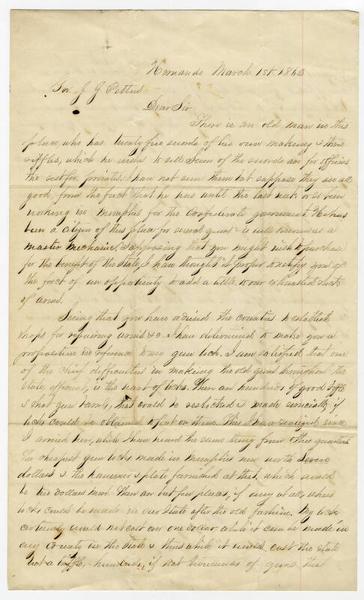 Hernando March 1st 1862
Gov J. J. Pettus
Dear Sir
There is an old man in this
place, who has twenty five swords of his own making & three
rifles, which he wishes to sell. Seven of the swords are for officers
the rest for privates. I have not seen them but suppose they are all
good from the fact that he has until the last week or so been
working in Memphis for the Confederate government. He has
been a citizen of this place for several years & is well known as a
master mechanic. Supposing that you might wish to purchase
for the benefit of the State, I have thought it proper to notify you of
the fact of an opportunity to add a little to our exhausted stock
of arms.
Seeing that you have advised the counties to establish
shops for repairing arms &c. I have determined to make you a
proposition in reference to my gun lock. I am satisfied that one
of the chief difficulties in making the old guns throughout the
State efficient, is the want of locks. There are hundreds of good rifles
& shot gun barrels, that could be restocked & made serviceable if
locks could be obtained to put on them. This I have
I arrived here, while I have heard the same thing from other quarters
The cheapest gun locks made in Memphis are worth seven
dollars & the hammer & plate furnished at that, which would
be ten dollars. There are but few places, if any at all where
locks could be made in our State after the old fashion. My lock
certainly would not cost over one dollar while it can be made in
any County in the State & thus while it would cost the State
but a trifle, hundreds, if not thousands of guns that